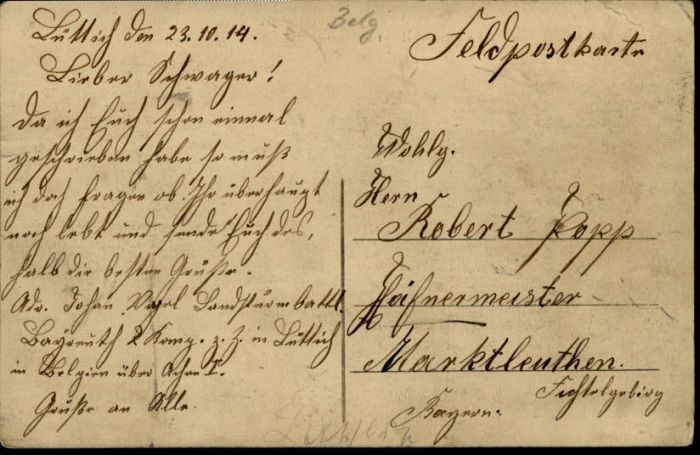 Lüttich den 23.10.14.
Lieber Schwager!
Da ich Euch schon einmal
geschrieben habe so muß
ich doch fragen ob Ihr überhaupt
noch lebt und sende Euch des,
halb die besten Grüße.
Adr. Johan Landsturmbattl.
Bayreuth 2 Komp. z. Z. in Lüttich
in Belgien über Achen
Grüße an Alle.
Belg.
Feldpostkarte
Wohlg.
Hern
Robert Popp
Häfnermeister
Marktleuthen.
Fichtelgebirg
Bayern.